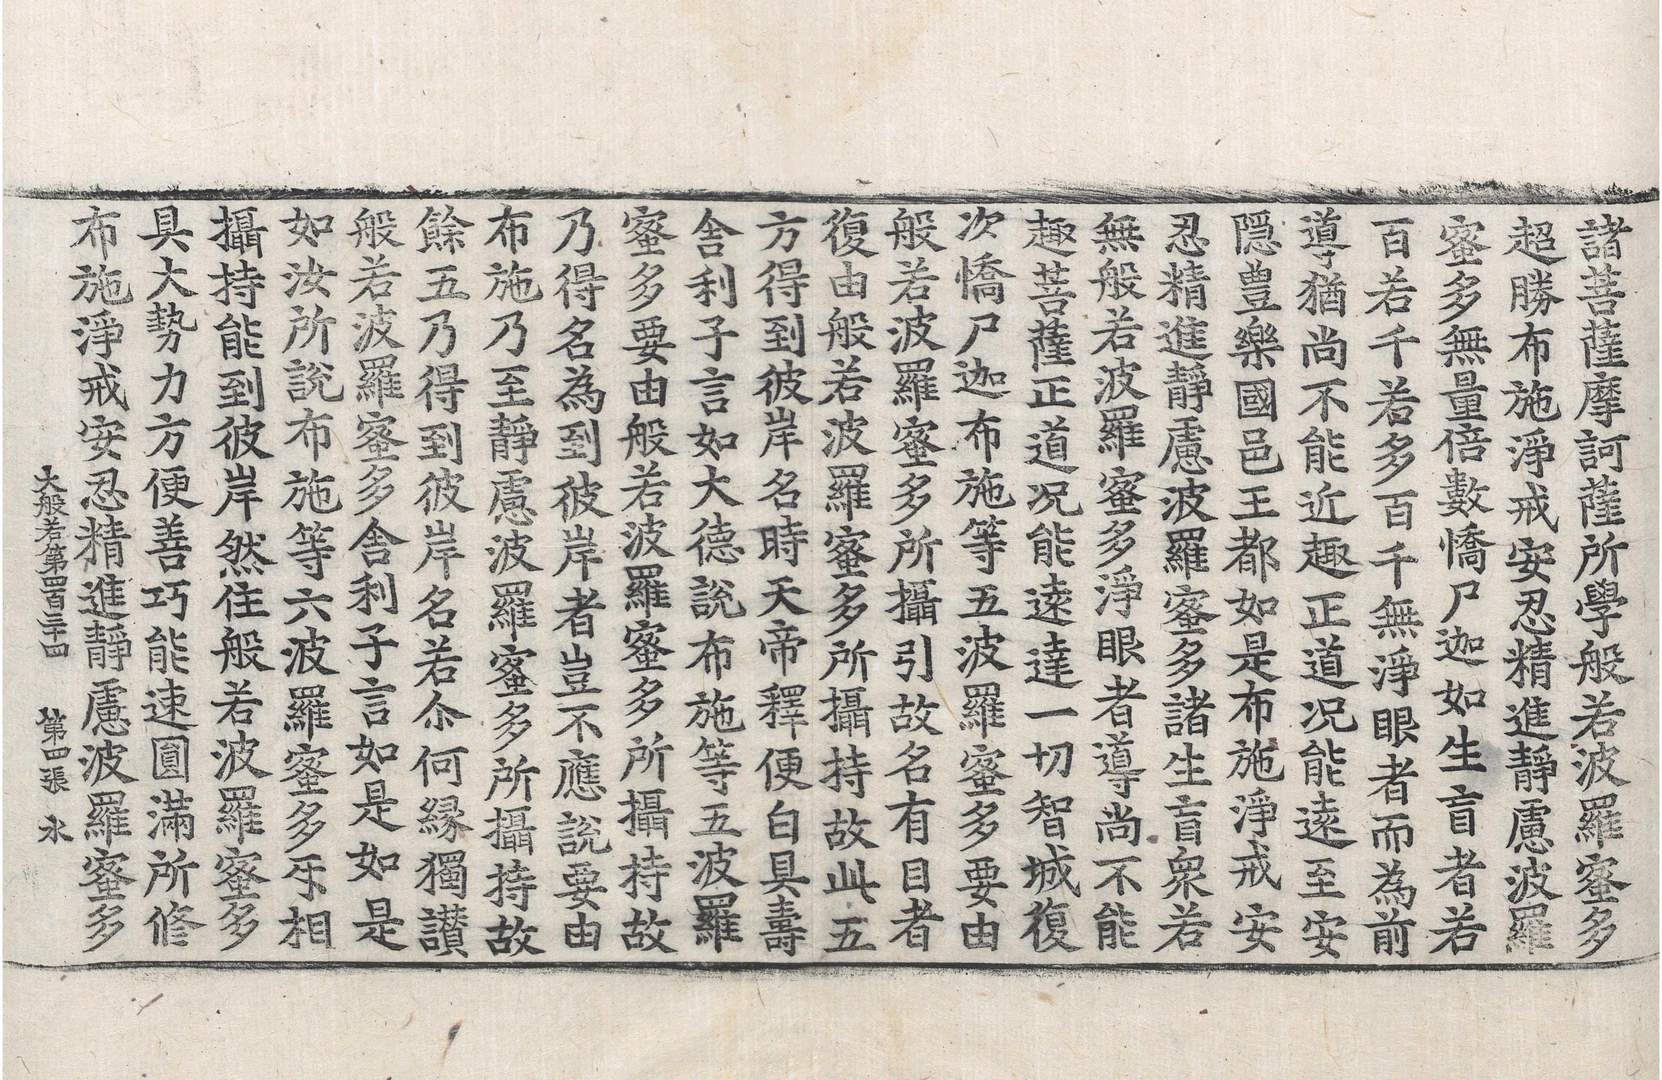 諸菩薩摩訶薩所學般若波羅蜜多
超勝布施淨戒安忍精進靜慮波羅
蜜多無量倍數憍尸迦如生盲者若
百若千若多百千無淨眼者而為前
導猶尚不能近趣正道況能遠至安
隱豊樂國邑王都如是布施淨戒安
忍精進靜慮波羅蜜多諸生盲衆若
無般若波羅蜜多淨眼者導尚不能
趣菩薩正道況能遠達一切智城復
次憍尸迦布施等五波羅蜜多要由
般若波羅蜜多所攝引故名有目者
復由般若波羅蜜多所攝持故此五
方得到彼岸名時天帝釋便白具壽
舍利子言如大德說布施等五波羅
蜜多要由般若波羅蜜多所攝持故
乃得名為到彼岸者豈不應說要由
布施乃至靜慮波羅蜜多所攝持故
餘五乃得到彼岸名若尒何緣獨讃
般若波羅蜜多舍利子言如是如是
如汝所說布施等六波羅蜜多互相
攝持能到彼岸然住般若波羅蜜多
具大勢力方便善巧能速圓滿所修
布施淨戒安忍精進靜慮波羅蜜多
大般若第四百三十四 第四張 水